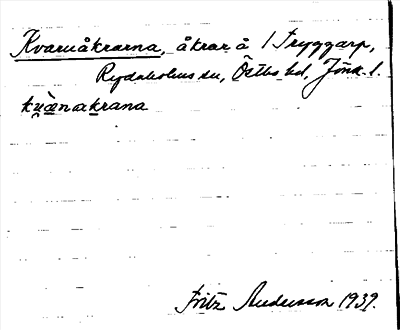 Kvarnåkrarna, åkrar å 1 Tryggarp,
Rydaholms sn, Östbo hd, Jönk. l.
kv̯ὰn ak̲rana
Fritz Andersson 1939.